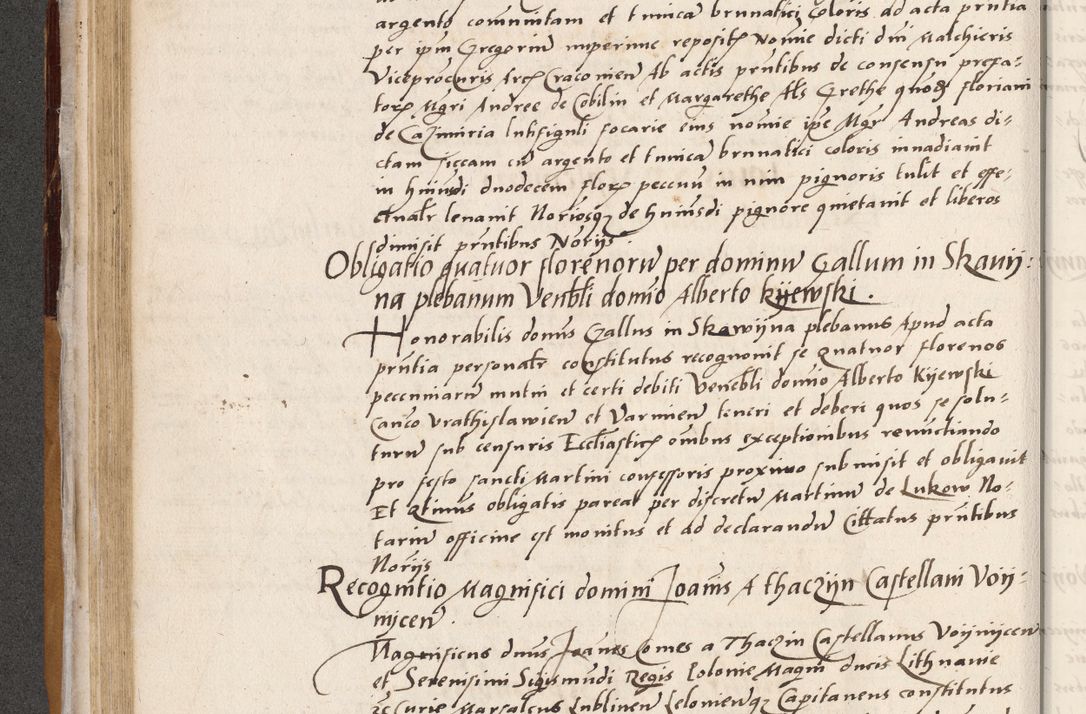 argento communitam et tunica brunatici coloris ad acta pñtia
per ipm Gregoriu nuperime reposit Nomie dicti dni Malchieris
Viceprocuris Arc Craconien Ab actis pñtibus de consensu prefa-
tor Mgri Andree de Cobilin et Margarethe Als Grethe quod floriani
de Cazimiria lutifiguli focarie eius nomie ipe Mgr Andreas di-
ctam siccam cu argento et tunica brunatici coloris inuadiauit
in huiusdi duodecem flor peccun in nim pignoris tulit et effe-
ctualr leuauit Noriosq de huiusdi pignore quietauit et liberos
dimisit pñtibus Norijs
Obligatio quatuor florenoru per dominu Gallum in Skavij-
na plebanum Venbli domio Alberto Kijewski.
Honorabilis domus Gallus in Skawijna plebanus Apud acta
pñtia personalr constitutus recognouit se quatuor florenos
peccuniaru mutui et certi debiti Venebli domio Alberto Kijewski
Canco Vrathislawien et Varmien teneri et deberi quos se solu-
turu sub censuris Eccliastic omibus exceptionibus renunctiando
pro festo sancti Martini confessoris proximo submisit et obligauit
Et qtinus obligatis pareat per discretu Martinu de Lukow No-
tariu officine est monitus et ad declarandu Cittatus pñtibus
Norijs
Recognitio Magnifici domini Joanis A thaczijn Castellani Voij-
nijcen.
Magnificus dnus Joanes Comes a Thaczin Castellanus Voijnijcen
et Serenisimi Sigismundi Regis Polonie Magni ducis Lithuanie
zc Curie Marsalcus Lublinen Beloniensq Capitaneus constitutus